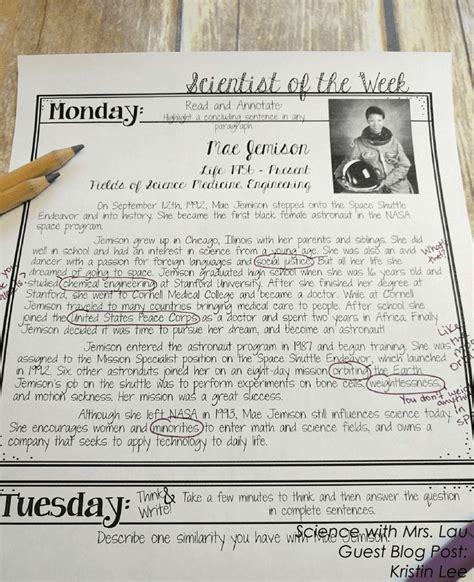 Scientist of the Week
Monday:
Read and Annotate:
Highlight a concluding sentence in any
paragraph.
Mae Jemison
Life 1956 - Present
Fields of Science: Medicine, Engineering
On September 12th, 1992, Mae Jemison stepped onto the Space Shuttle
Endeavor and into history. She became the first black female astronaut in the NASA
space program.
Jemison grew up in Chicago, Illinois with her parents and siblings. She did
well in school and had an interest in science from a young age. She was also an avid
dancer with a passion for foreign languages and social justice. But all her life she
dreamed of going to space. Jemison graduated high school when she was 16 years old and
studied chemical engineering at Stanford University. After she finished her degree at
Stanford, she went to Cornell Medical College and became a doctor. While at Cornell
Jemison traveled to many countries bringing medical care to people. After school she
joined the United States Peace Corps as a doctor and spent two years in Africa. Finally
Jemison decided it was time to pursue her dream, and become an astronaut!
Jemison entered the astronaut program in 1987 and began training. She was
assigned to the Mission Specialist position on the Space Shuttle Endeavor, which launched
in 1992. Six other astronauts joined her on an eight-day mission orbiting the Earth.
Jemison's job on the shuttle was to perform experiments on bone cells, weightlessness,
and motion sickness. Her mission was a great success.
You don't
Although she left NASA in 1993, Mae Jemison still influences science today.
She encourages women and minorities to enter math and science fields, and owns a
company that seeks to apply technology to daily life.
Tuesday:
Think & Write!
Take a few minutes to think and then answer the question
in complete sentences.
Describe one similarity you have with Mae Jemison.
Science with Mrs. Lau
Guest Blog Post:
Kristin Lee